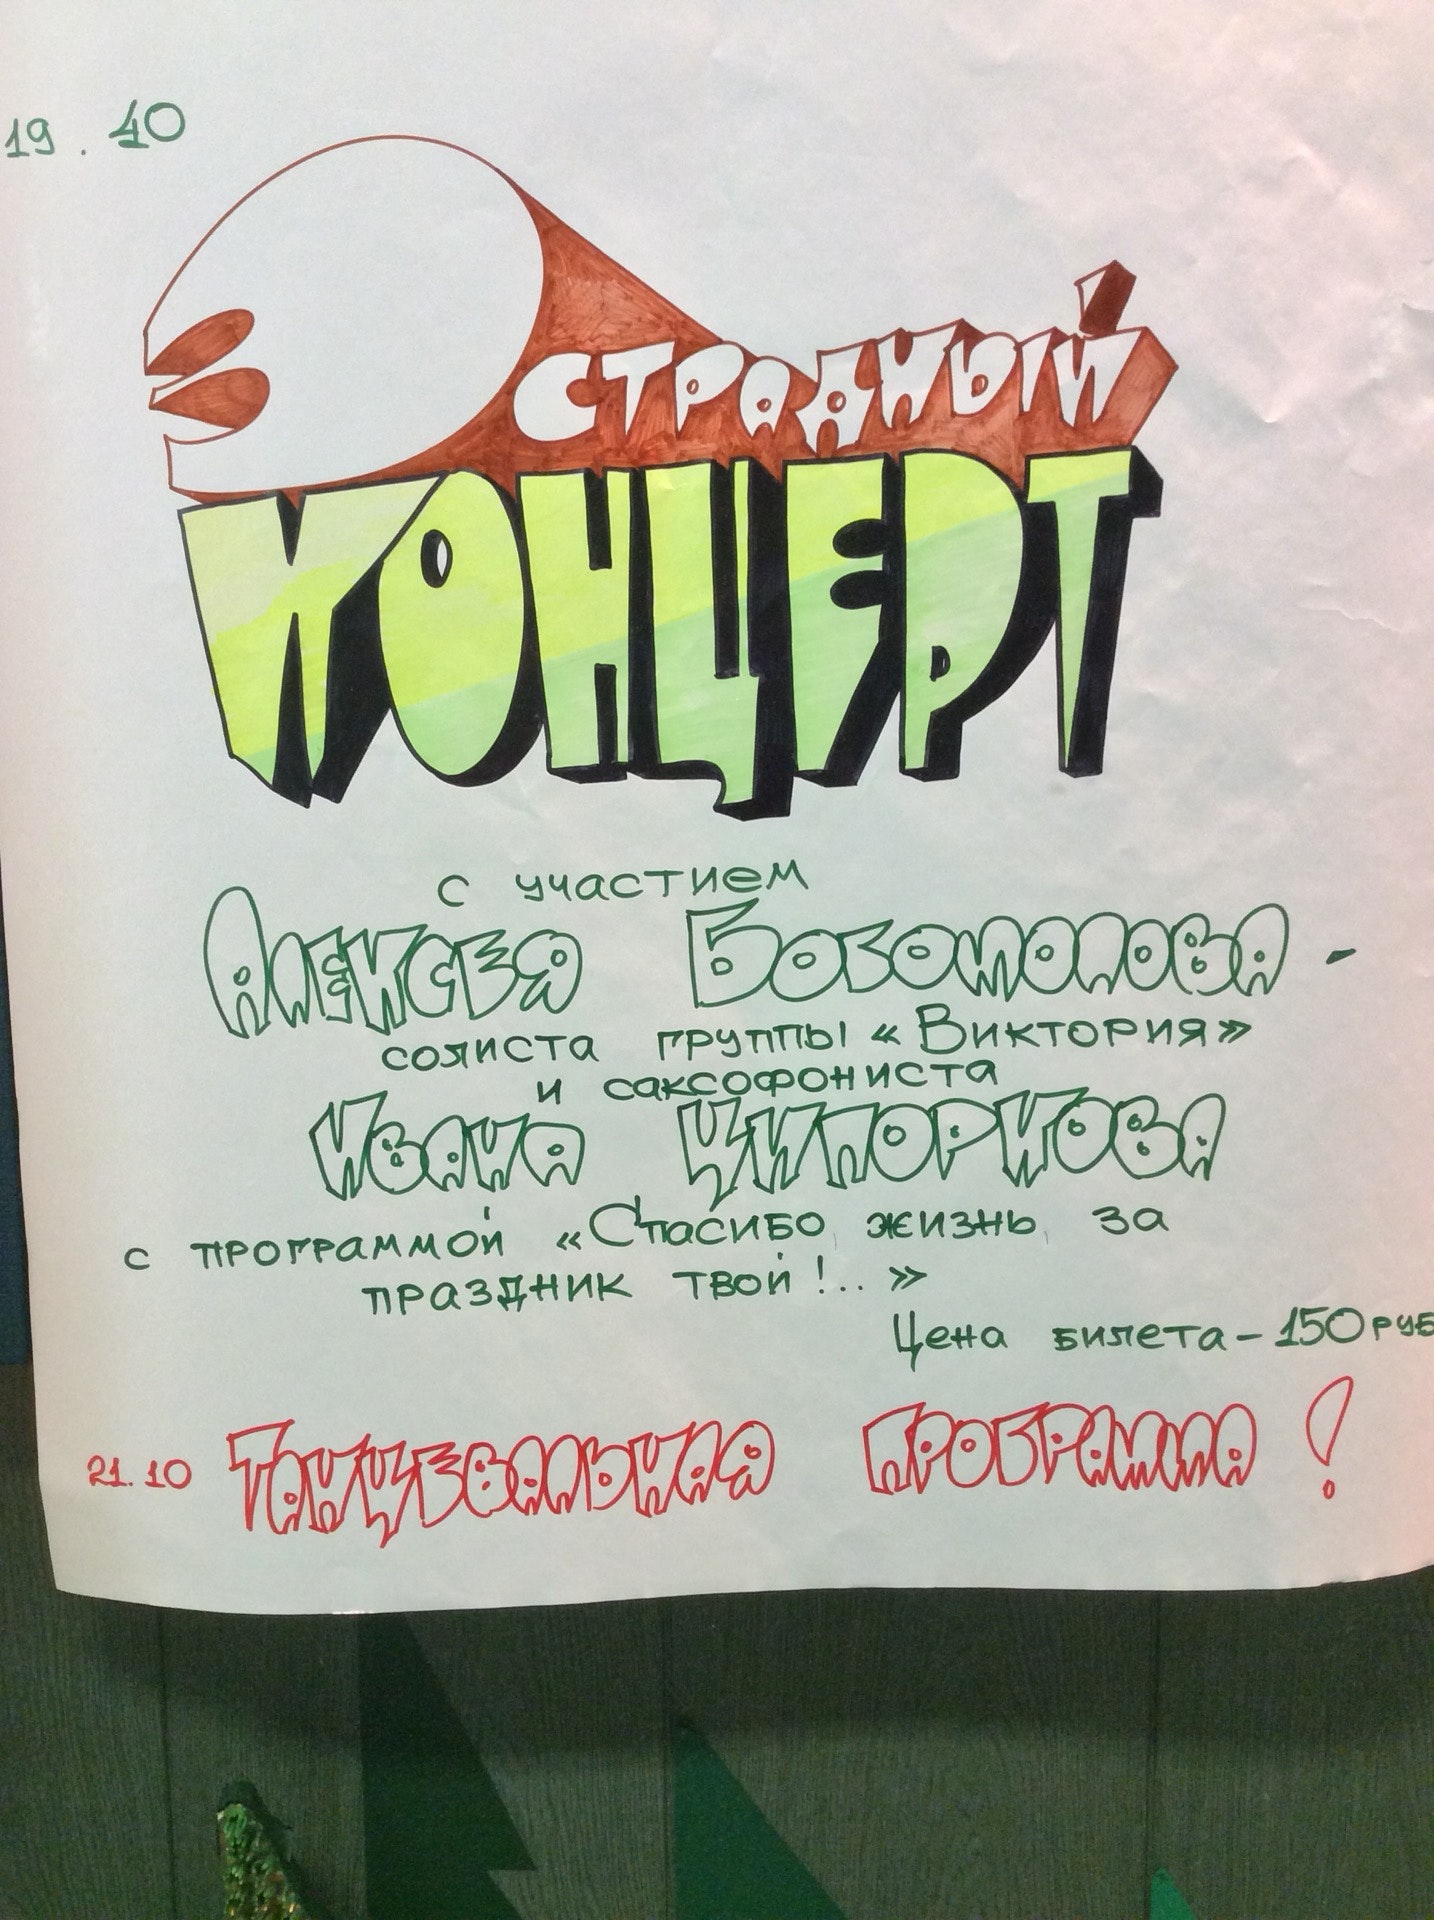 19.40
Эстрадный
концерт
с участием
Алексея Богомолова -
солиста группы «Виктория»
и саксофониста
Ивана Ципоркова
с программой «Спасибо, жизнь, за
праздник твой!..»
Цена билета – 150 руб
21.10 Танцевальная программа!